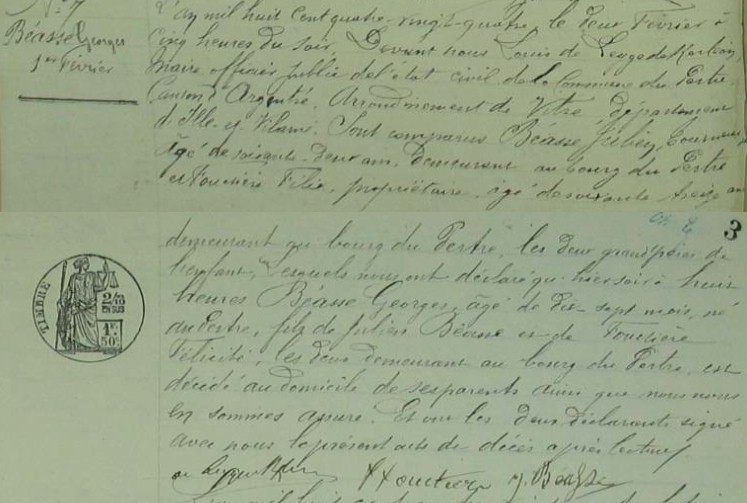 N° 7
Béasse Georges
1er Février
L'an mil huit cent quatre-vingt-quatre, le deux Février à
cinq heures du soir, Devant nous Louis de
Maire officier public de l'état civil de la Commune du Pertre
Canton d'Argentré, Arrondissement de Vitré, département
d'Ille-et-Vilaine, Sont comparus Béasse Julien,
âgé de soixante-deux ans, demeurant au bourg du Pertre
et Fouctière Félix, propriétaire, âgé de soixante treize ans
3
demeurant au bourg du Pertre, les deux grands pères de
l'enfant, Lesquels nous ont déclaré que hier soir à huit
heures Béasse Georges, âgé de dix-sept mois, né
au Pertre, fils de Julien Béasse et de Fouctière
Félicité, les deux demeurant au bourg du Pertre, est
décédé au domicile de ses parents ainsi que nous nous
en sommes assuré. Et ont les deux déclarants signé
avec nous le présent acte de décès après lecture
TIMBRE
2/10
EN SUS
1F
50c
Fouctière J. Béasse